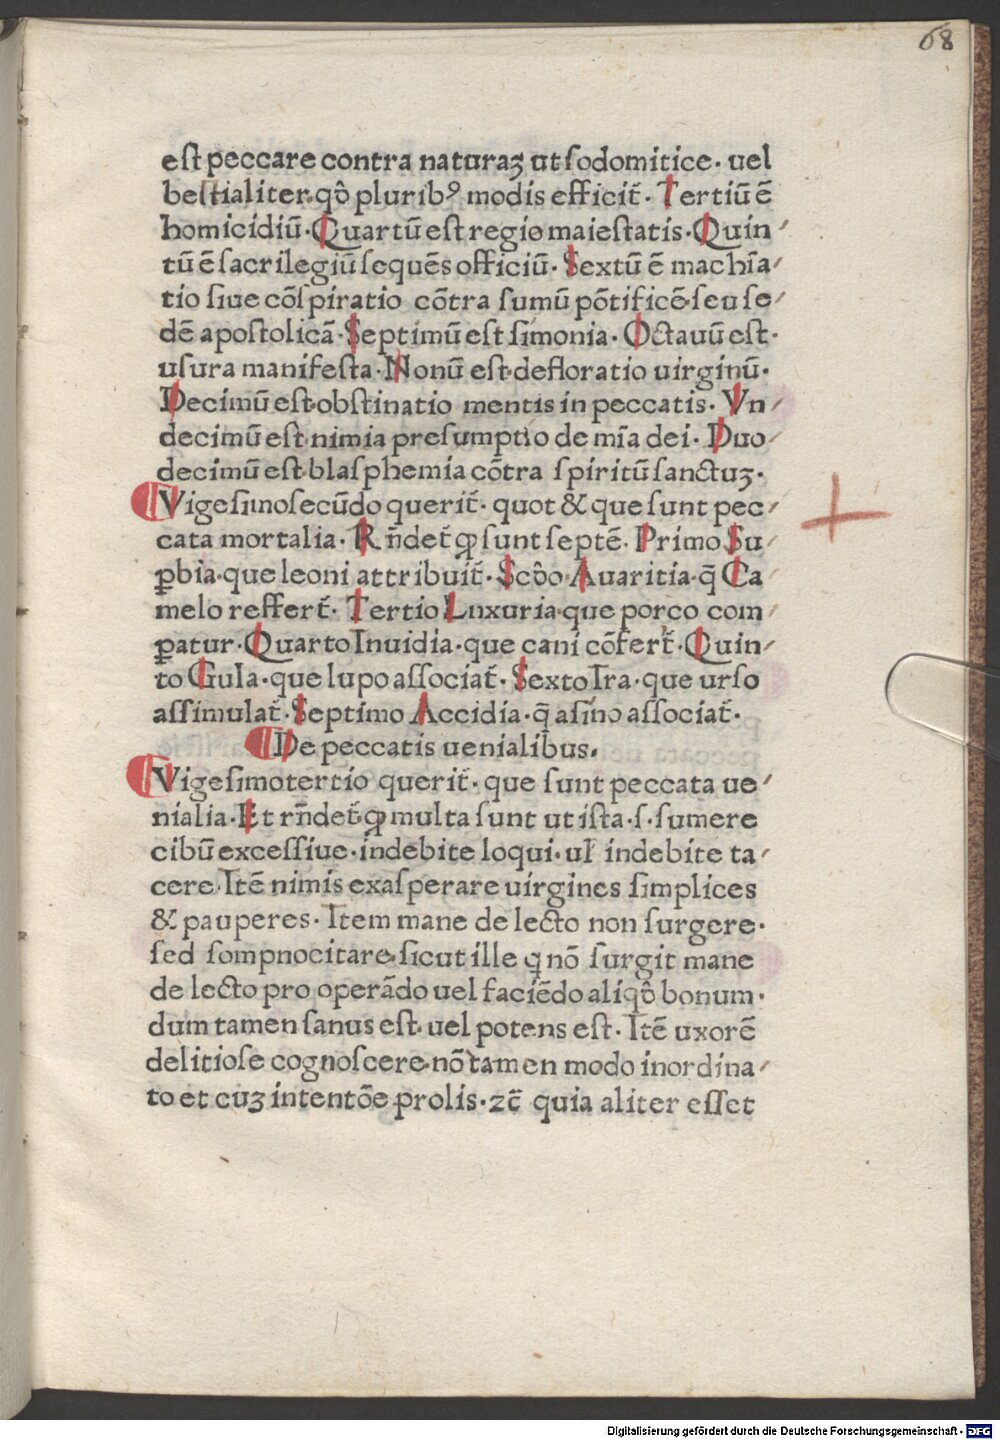 68
est peccare contra naturaꝫ ut sodomitice· uel
bestialiter·qȏ pluribꝰ modis efficit̃· Tertiū ē
homicidiū· Quartū est regie maiestatis· Quin
tū ē sacrilegiū sequēs officiū· Sextū ē machīa
tio siue cōspiratio cōtra sumū pōtificē·seu se
dē apostolicā· Septimū est simonia· Octauū est·
usura manifesta· Nonū est·defloratio uirginū·
Decimū est·obstinatio mentis in peccatis· Vn
decimū est·nimia presumptio de mīa dei· Duo
decimū est·blasphemia cōtra spiritū sanctuꝫ·
Vigesimosecūdo querit̃· quot & que sunt pec
cata mortalia· Rñdet̃ ꝙ sunt septē· Primo Su
ꝑbia·que leoni attribuit̃· Scȏo Auaritia·q̄ Ca
melo reffert̃· Tertio Luxuria·que porco com
ꝑatur· Quarto Inuidia·que cani cōfert̃· Quin
to Gula·que lupo associat̃· Sexto Ira·que urso
assimulat̃· Septimo Accidia·q̄ asino associat̃·
De peccatis uenialibus.
Vigesimotertio querit̃· que sunt peccata ue
nialia· Et rñdet̃ ꝙ multa sunt ut ista·s·sumere
cibū excessiue·indebite loqui·ul indebite ta
cere·Itē nimis exasperare uirgines simplices
& pauperes· Item mane de lecto non surgere·
sed sompnocitare·sicut ille q nō surgit mane
de lecto pro operādo uel faciēdo aliqȏ bonum·
dum tamen sanus est· uel potens est· Itē uxorē
delitiose cognoscere·nō tamen modo inordina
to et cuꝫ intentōe prolis·zc̄ quia aliter esset
Digitalisierung gefördert durch die Deutsche Forschungsgemeinschaft - DFG